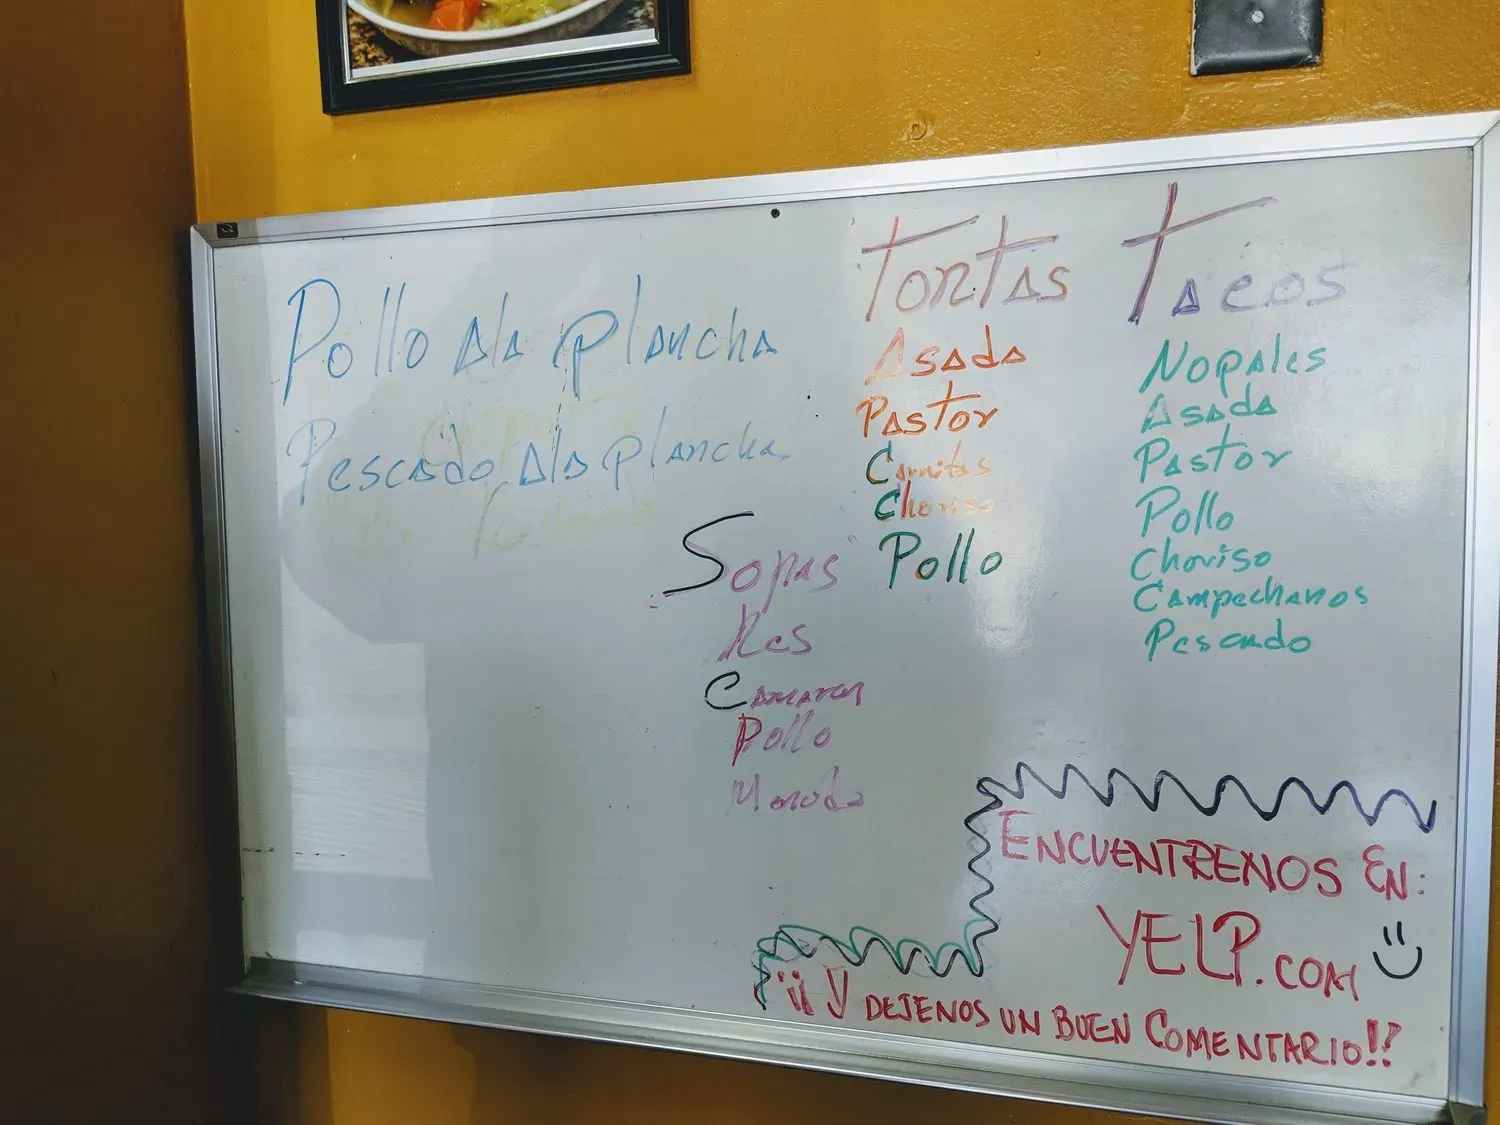 Pollo ala plancha
Pescado ala plancha
Tortas
Asada
Pastor
Carnitas
Choriso
Pollo
Tacos
Nopales
Asada
Pastor
Pollo
Choriso
Campechanos
Pescado
Sopas
Res
Camaron
Pollo
Menudo
ENCUENTRENOS EN:
YELP.COM
¡¡ Y DEJENOS UN BUEN COMENTARIO!!